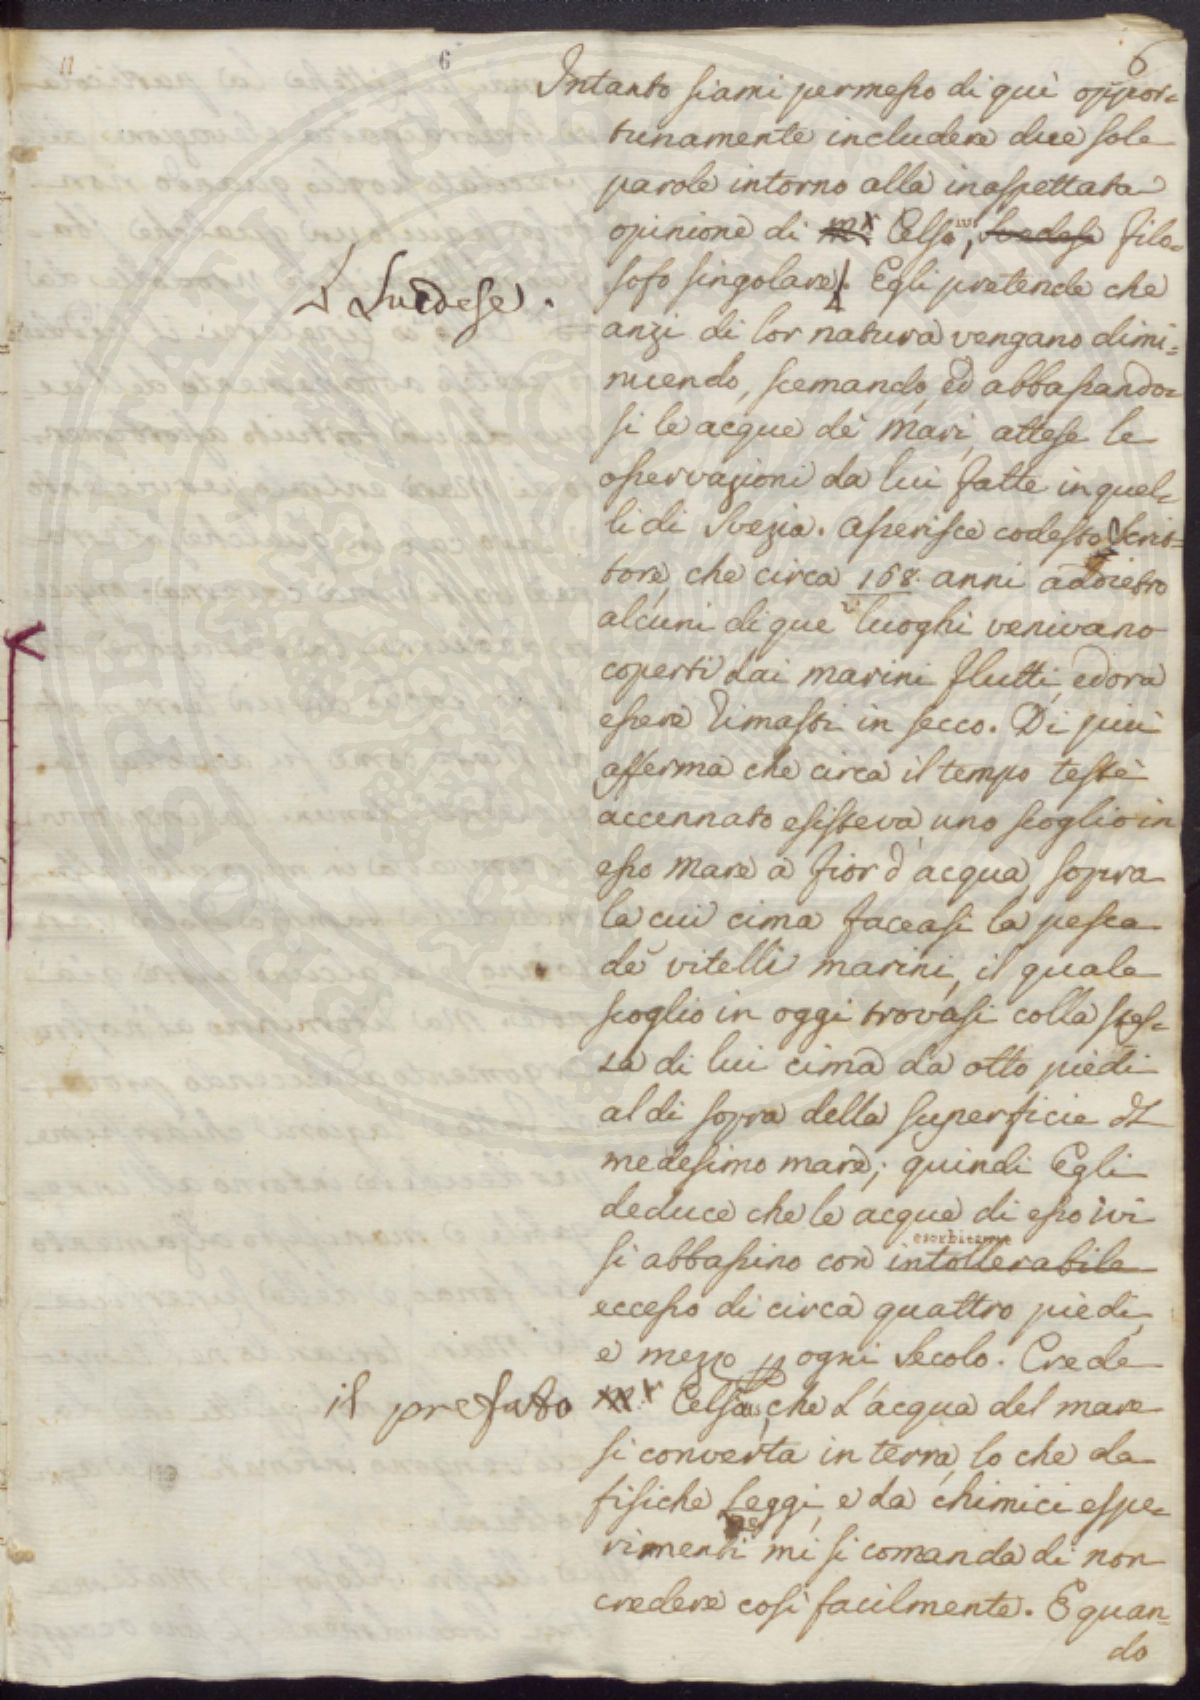 11
6
6
Intanto siami permesso di quì oppor=
tunamente includere due sole
parole intorno alla inaspettata
opinione di mr Celsius, Svedese filo=
sofo singolare. Egli pretende che
Svedese.
anzi di lor natura vengano dimi=
nuendo, scemando, ed abbassando=
si le acque de' Mari, attese le
osservazioni da lui fatte in quel=
li di Svezia. Asserisce codesto Scrit=
tore, che circa 168. anni addietro
alcuni di que' luoghi venivano
coperti dai marini flutti, ed ora
essere rimasti in secco. Di più
afferma che circa il tempo testè
accennato esisteva uno scoglio in
esso mare a fior d'acqua, sopra
la cui cima faceasi la pesca
de' vitelli marini, il quale
scoglio in oggi trovasi colla stes=
sa di lui cima da otto piedi
al di sopra della superficie del
medesimo mare; quindi Egli
deduce che le acque di esso ivi
esorbitante
si abbassino con intollerabile
eccesso di circa quattro piedi,
e mezzo per ogni Secolo. Crede
il prefato mr Celsius, che l'acqua del mare
si converta in terra, lo che da
fisiche Leggi, e da chimici espe=
rimenti mi si comanda di non
credere così facilmente. E quan=
do